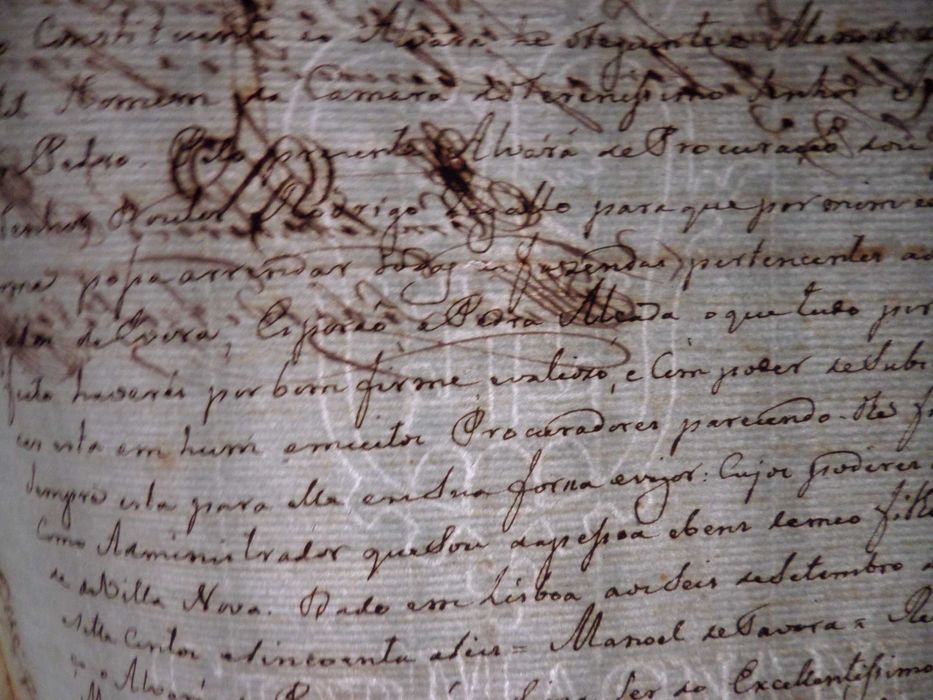 Constituente o Alvará he oseguinte = Manoel de
Homem da Camara do Serenissimo Senhor
Pedro. Pelo prezente Alvará de Procuração dou
Senhor Doutor Rodrigo para que por mim e
possa arrendar todas as fazendas pertencentes ao
de Evora, Esporaõ, e Pedra Alçada o que tudo por
feito haverei por bom firme, evaliozo, e Com poder de Subs
esta em hum emuitos Procuradores parecendo-lhe
Sempre esta para elle em Sua forsa evigor: Cujos poderes
Como Administrador que Sou dapessoa ebens demeo filho
de Villa Nova. Dado em Lisboa aos Seis de Setembro
Centos e Sincoenta e Seis = Manoel de Tavora =
Alvará
Ser do Excellentissimo